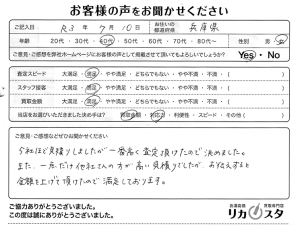 お客様の声をお聞かせください
ご記入日 R3年 7月 10日 お住いの都道府県 兵庫県
年齢 20代・30代・40代・50代・60代・70代・80代～ 性別 男・女
ご意見・ご感想を弊社ホームページにお客様の声として掲載させて頂いてもよろしいでしょうか? Yes・No
査定スピード 大満足・満足・やや満足・どちらでもない・やや不満・不満・( )
スタッフ接客 大満足・満足・やや満足・どちらでもない・やや不満・不満・( )
買取金額 大満足・満足・やや満足・どちらでもない・やや不満・不満・( )
当店をお選びいただきました決め手は? 買取金額・対応力・利便性・スピード・その他( )
ご意見・ご感想などぜひお聞かせください
今社ほど見積りしましたが一番高く査定頂けたので決めました。
また、一点だけ他社さんの方が高い見積りでしたが、お伝えすると
金額を上げて頂けたので満足しております。
ご協力ありがとうございました。
この度は誠にありがとうございました。
兵庫高価買取専門店
リカスタ